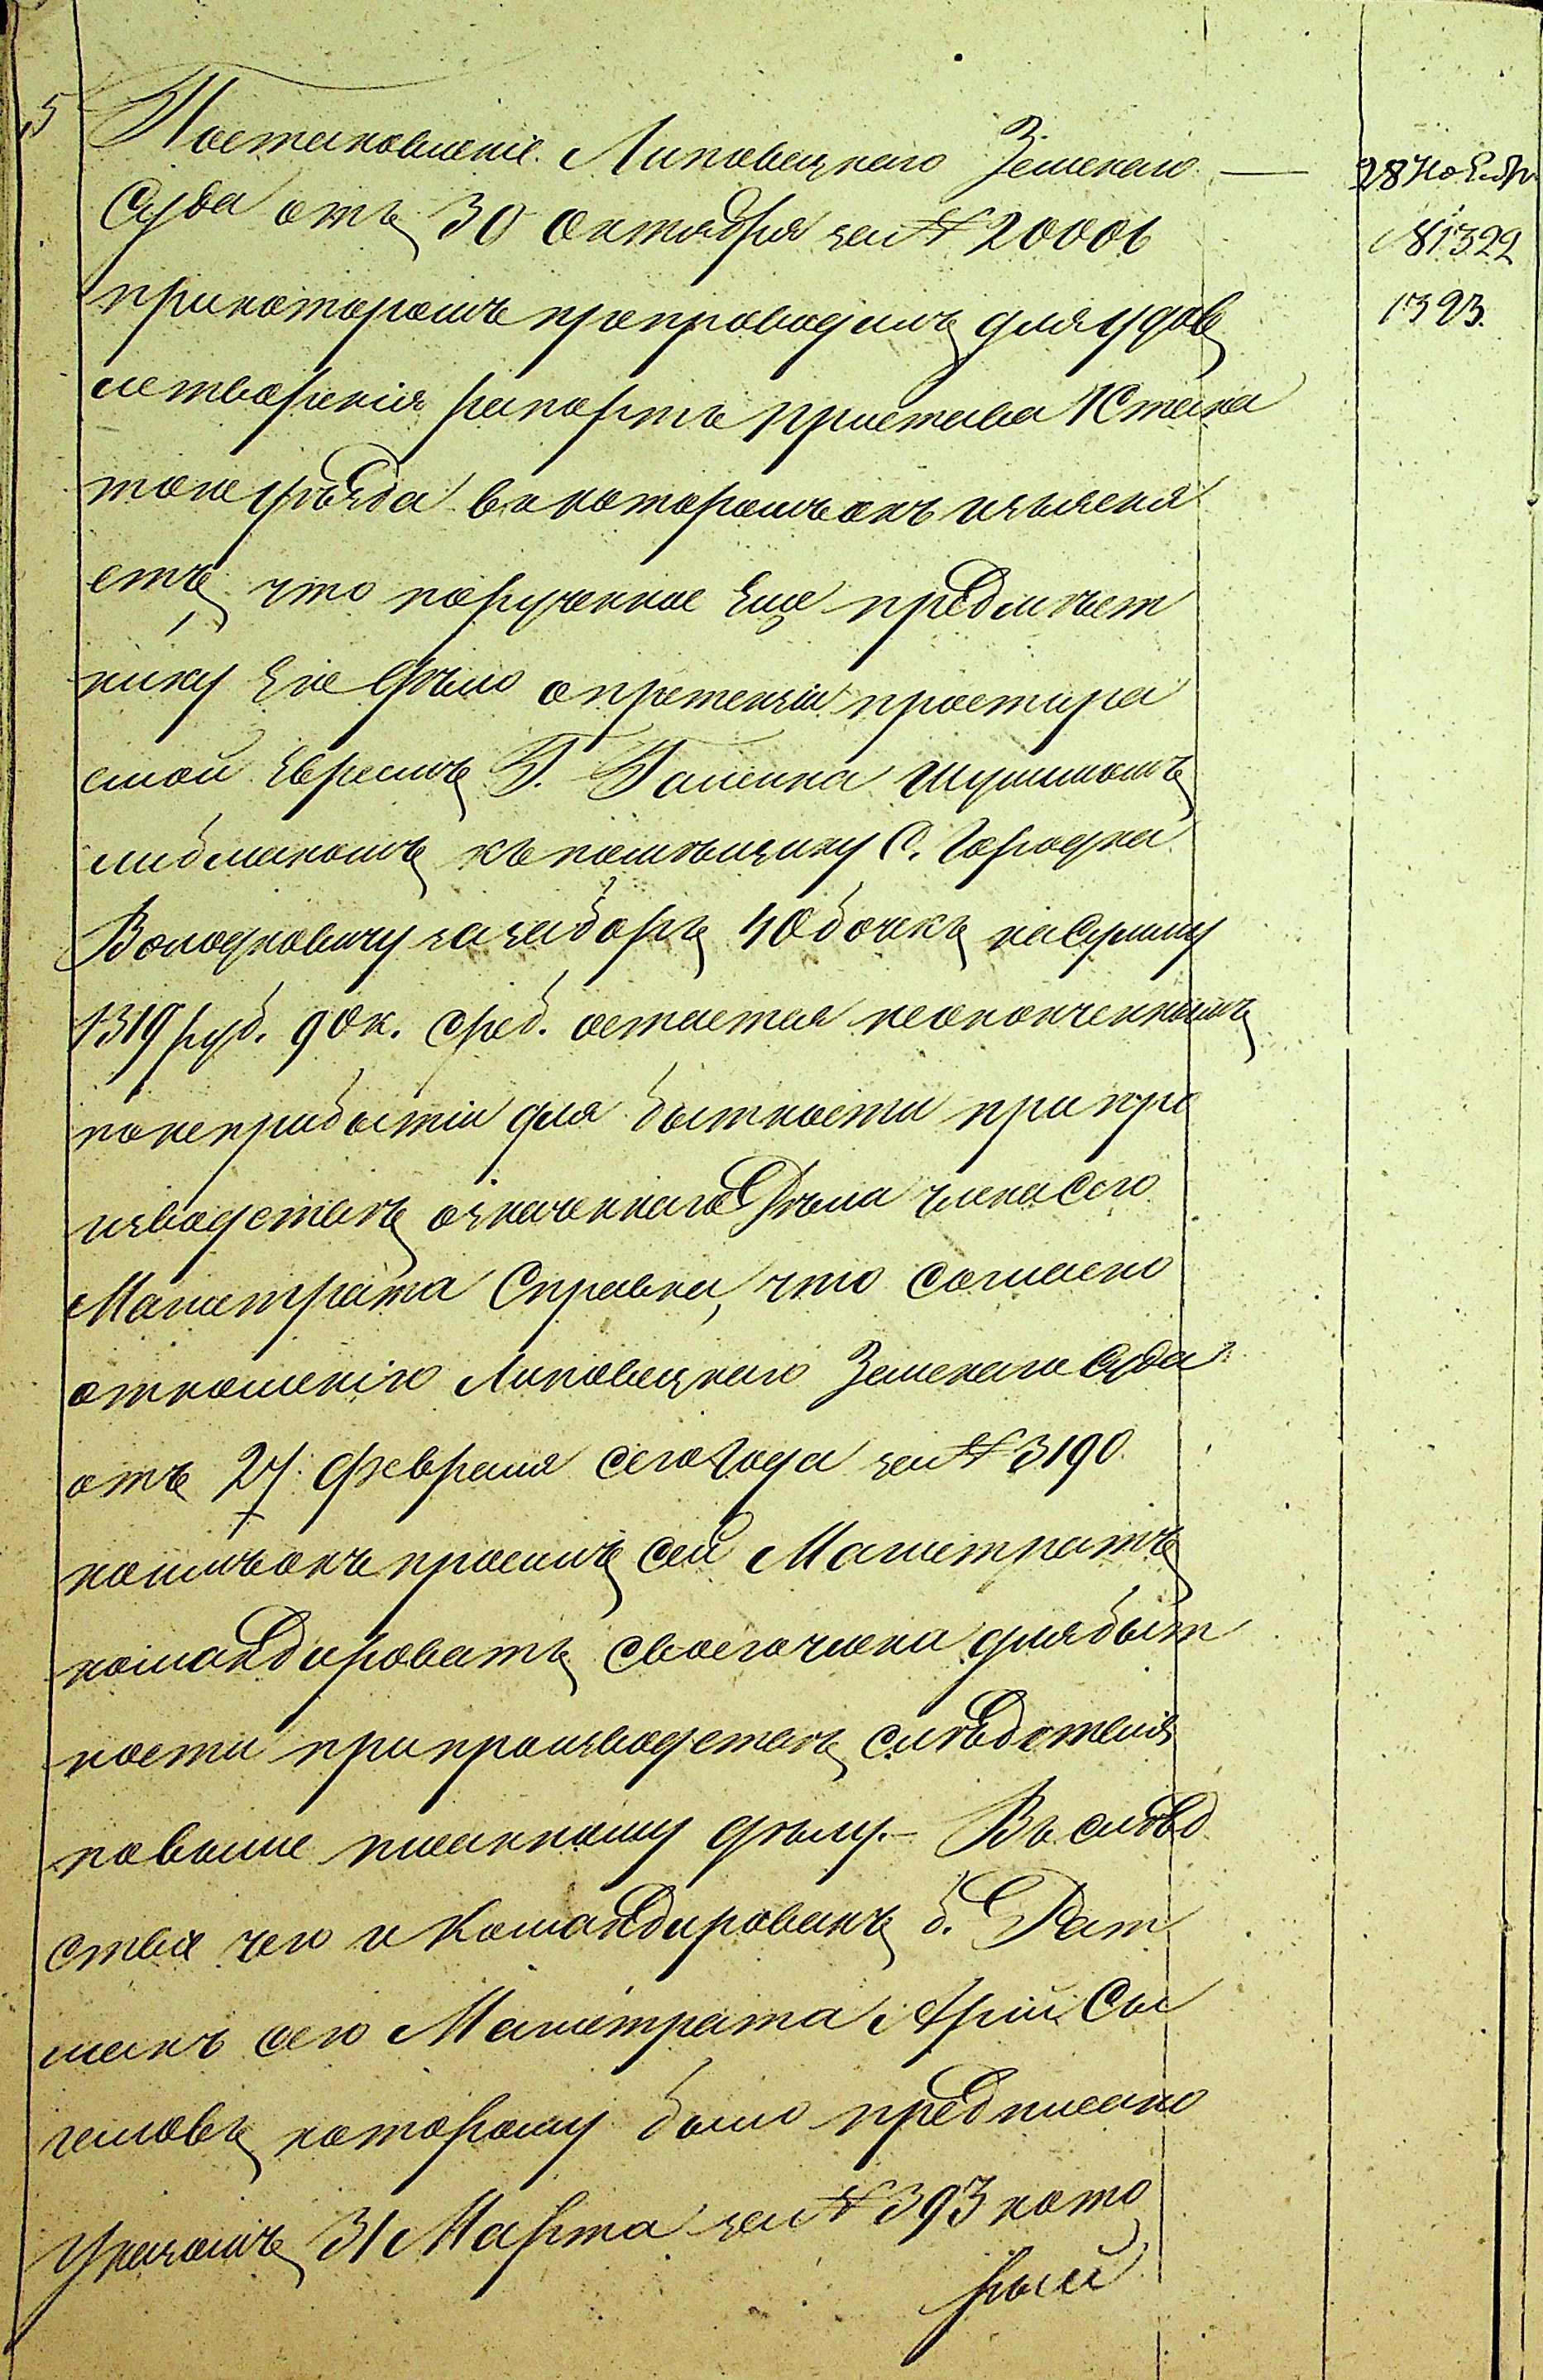 5
Постановленіе Липовецкаго Земскаго — 28 Ноября
Суда отъ 30 Октября за № 20006 № 1322
прикоторомъ препроводилъ дляудов 1323.
летворенія рапортъ пристава 1 Стана
тогоуѣзда вкоторомъонъ изъясня
етъ, что порученное Ему предмѣст
нику Его дѣло опретензіи простира
емой Евреемъ Г. Гайсина Шулимомъ
Либманомъ къпомѣщику С. Городка
Володковичу зазаборъ 40 бочекъ насумму
1319 руб. 90 к. среб. остается неоконченнымъ
понеприбытіи для бытности припро
изводствѣ означеннаго Дѣла члена Сего
Магистрата Справка, что согласно
отношенію Липовецкаго Земскаго Суда
отъ 27 февраля сегоГода за № 3190.
коимъонъ просилъ сей Магистратъ
командировать своегочлена длябыт
ности припроизводствѣ слѣдствія
повыше писанному дѣлу. — Въ слѣд
ствіе чего и Командированъ б. Рат
манъ сего Магистрата Арій Сы
галовъ которому было предписано
Указомъ 31 Марта за № 393 кото
рый